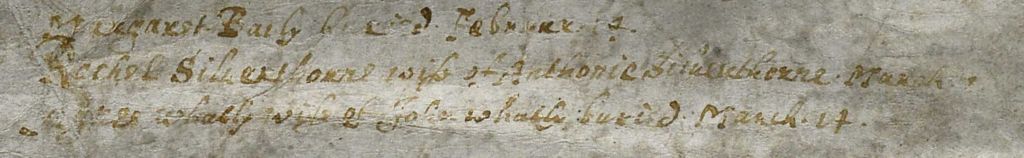 Margaret Baily buried Februarie 17.
Rachel Silverthorne wife of Anthonie Silverthorne March
Agnes Whatly wife of John Whatly buried March 17.